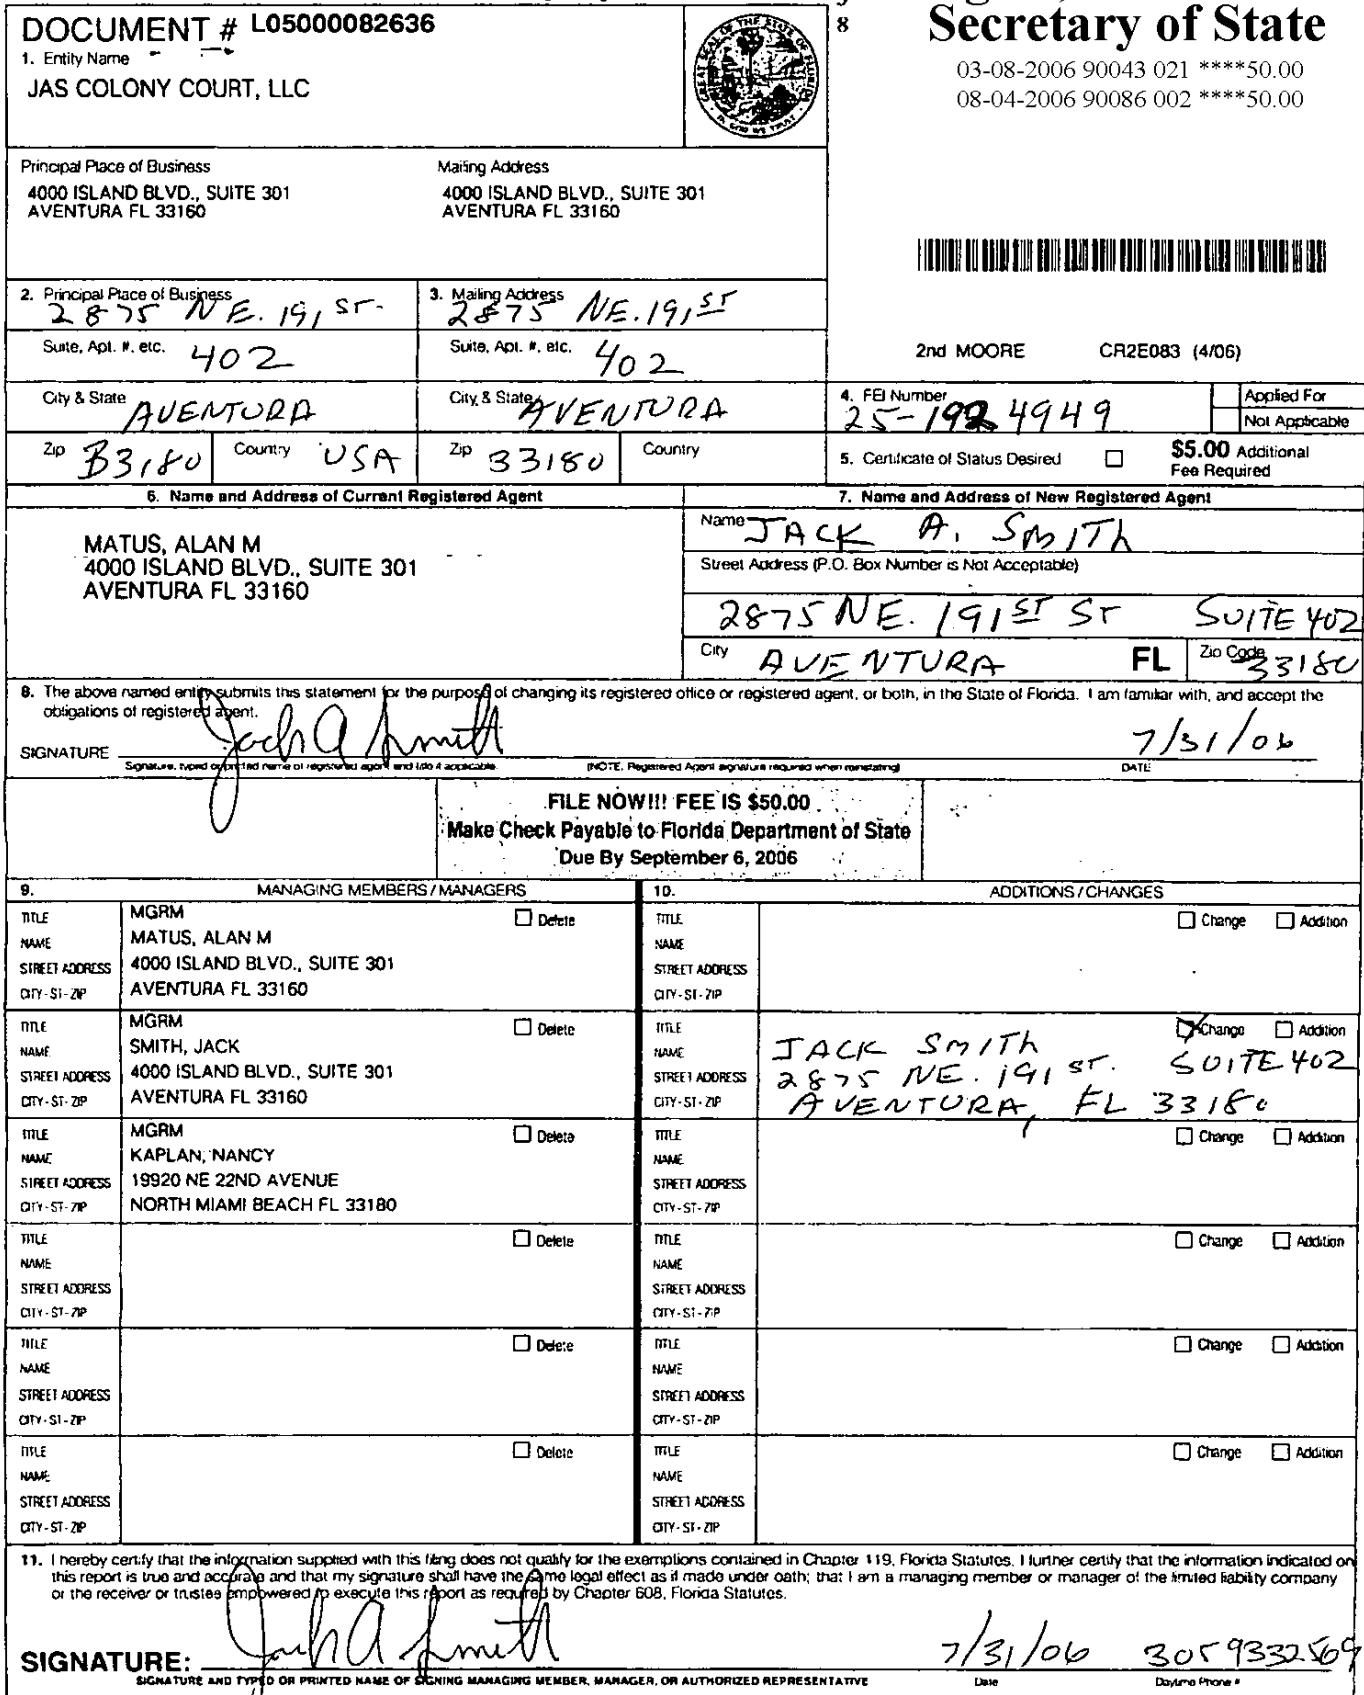 DOCUMENT # L05000082636
1. Entity Name
JAS COLONY COURT, LLC
8
Secretary of State
03-08-2006 90043 021 ****50.00
08-04-2006 90086 002 ****50.00
Principal Place of Business
4000 ISLAND BLVD., SUITE 301
AVENTURA FL 33160
Mailing Address
4000 ISLAND BLVD., SUITE 301
AVENTURA FL 33160
2. Principal Place of Business
2875 NE. 191 ST.
3. Mailing Address
2875 NE. 191 ST
Suite, Apt. #, etc. 402
Suite, Apt. #, etc. 402
2nd MOORE CR2E083 (4/06)
City & State AVENTURA
City & State AVENTURA
4. FEI Number
25-1924949
Applied For
Not Applicable
Zip 33180 Country USA
Zip 33180 Country
5. Certificate of Status Desired
$5.00 Additional
Fee Required
6. Name and Address of Current Registered Agent
MATUS, ALAN M
4000 ISLAND BLVD., SUITE 301
AVENTURA FL 33160
7. Name and Address of New Registered Agent
Name JACK A. SMITH
Street Address (P.O. Box Number is Not Acceptable)
2875 NE. 191ST ST SUITE 402
City AVENTURA FL Zip Code 33180
8. The above named entity submits this statement for the purpose of changing its registered office or registered agent, or both, in the State of Florida. I am familiar with, and accept the
obligations of registered agent.
SIGNATURE Jack A Smith 7/31/06
Signature, typed or printed name of registered agent and title if applicable. (NOTE. Registered Agent signature required when reinstating) DATE
FILE NOW!!! FEE IS $50.00
Make Check Payable to Florida Department of State
Due By September 6, 2006
9. MANAGING MEMBERS / MANAGERS
10. ADDITIONS / CHANGES
TITLE MGRM Delete
NAME MATUS, ALAN M
STREET ADDRESS 4000 ISLAND BLVD., SUITE 301
CITY-ST-ZIP AVENTURA FL 33160
TITLE Change Addition
NAME
STREET ADDRESS
CITY-ST-ZIP
TITLE MGRM Delete
NAME SMITH, JACK
STREET ADDRESS 4000 ISLAND BLVD., SUITE 301
CITY-ST-ZIP AVENTURA FL 33160
TITLE Change Addition
NAME JACK SMITH
STREET ADDRESS 2875 NE. 191 ST. SUITE 402
CITY-ST-ZIP AVENTURA, FL 33180
TITLE MGRM Delete
NAME KAPLAN, NANCY
STREET ADDRESS 19920 NE 22ND AVENUE
CITY-ST-ZIP NORTH MIAMI BEACH FL 33180
TITLE Change Addition
NAME
STREET ADDRESS
CITY-ST-ZIP
TITLE Delete
NAME
STREET ADDRESS
CITY-ST-ZIP
TITLE Change Addition
NAME
STREET ADDRESS
CITY-ST-ZIP
TITLE Delete
NAME
STREET ADDRESS
CITY-ST-ZIP
TITLE Change Addition
NAME
STREET ADDRESS
CITY-ST-ZIP
TITLE Delete
NAME
STREET ADDRESS
CITY-ST-ZIP
TITLE Change Addition
NAME
STREET ADDRESS
CITY-ST-ZIP
11. I hereby certify that the information supplied with this filing does not qualify for the exemptions contained in Chapter 119, Florida Statutes. I further certify that the information indicated on
this report is true and accurate and that my signature shall have the same legal effect as if made under oath; that I am a managing member or manager of the limited liability company
or the receiver or trustee empowered to execute this report as required by Chapter 608, Florida Statutes.
SIGNATURE: Jack A Smith 7/31/06 3059332569
SIGNATURE AND TYPED OR PRINTED NAME OF SIGNING MANAGING MEMBER, MANAGER, OR AUTHORIZED REPRESENTATIVE Date Daytime Phone #